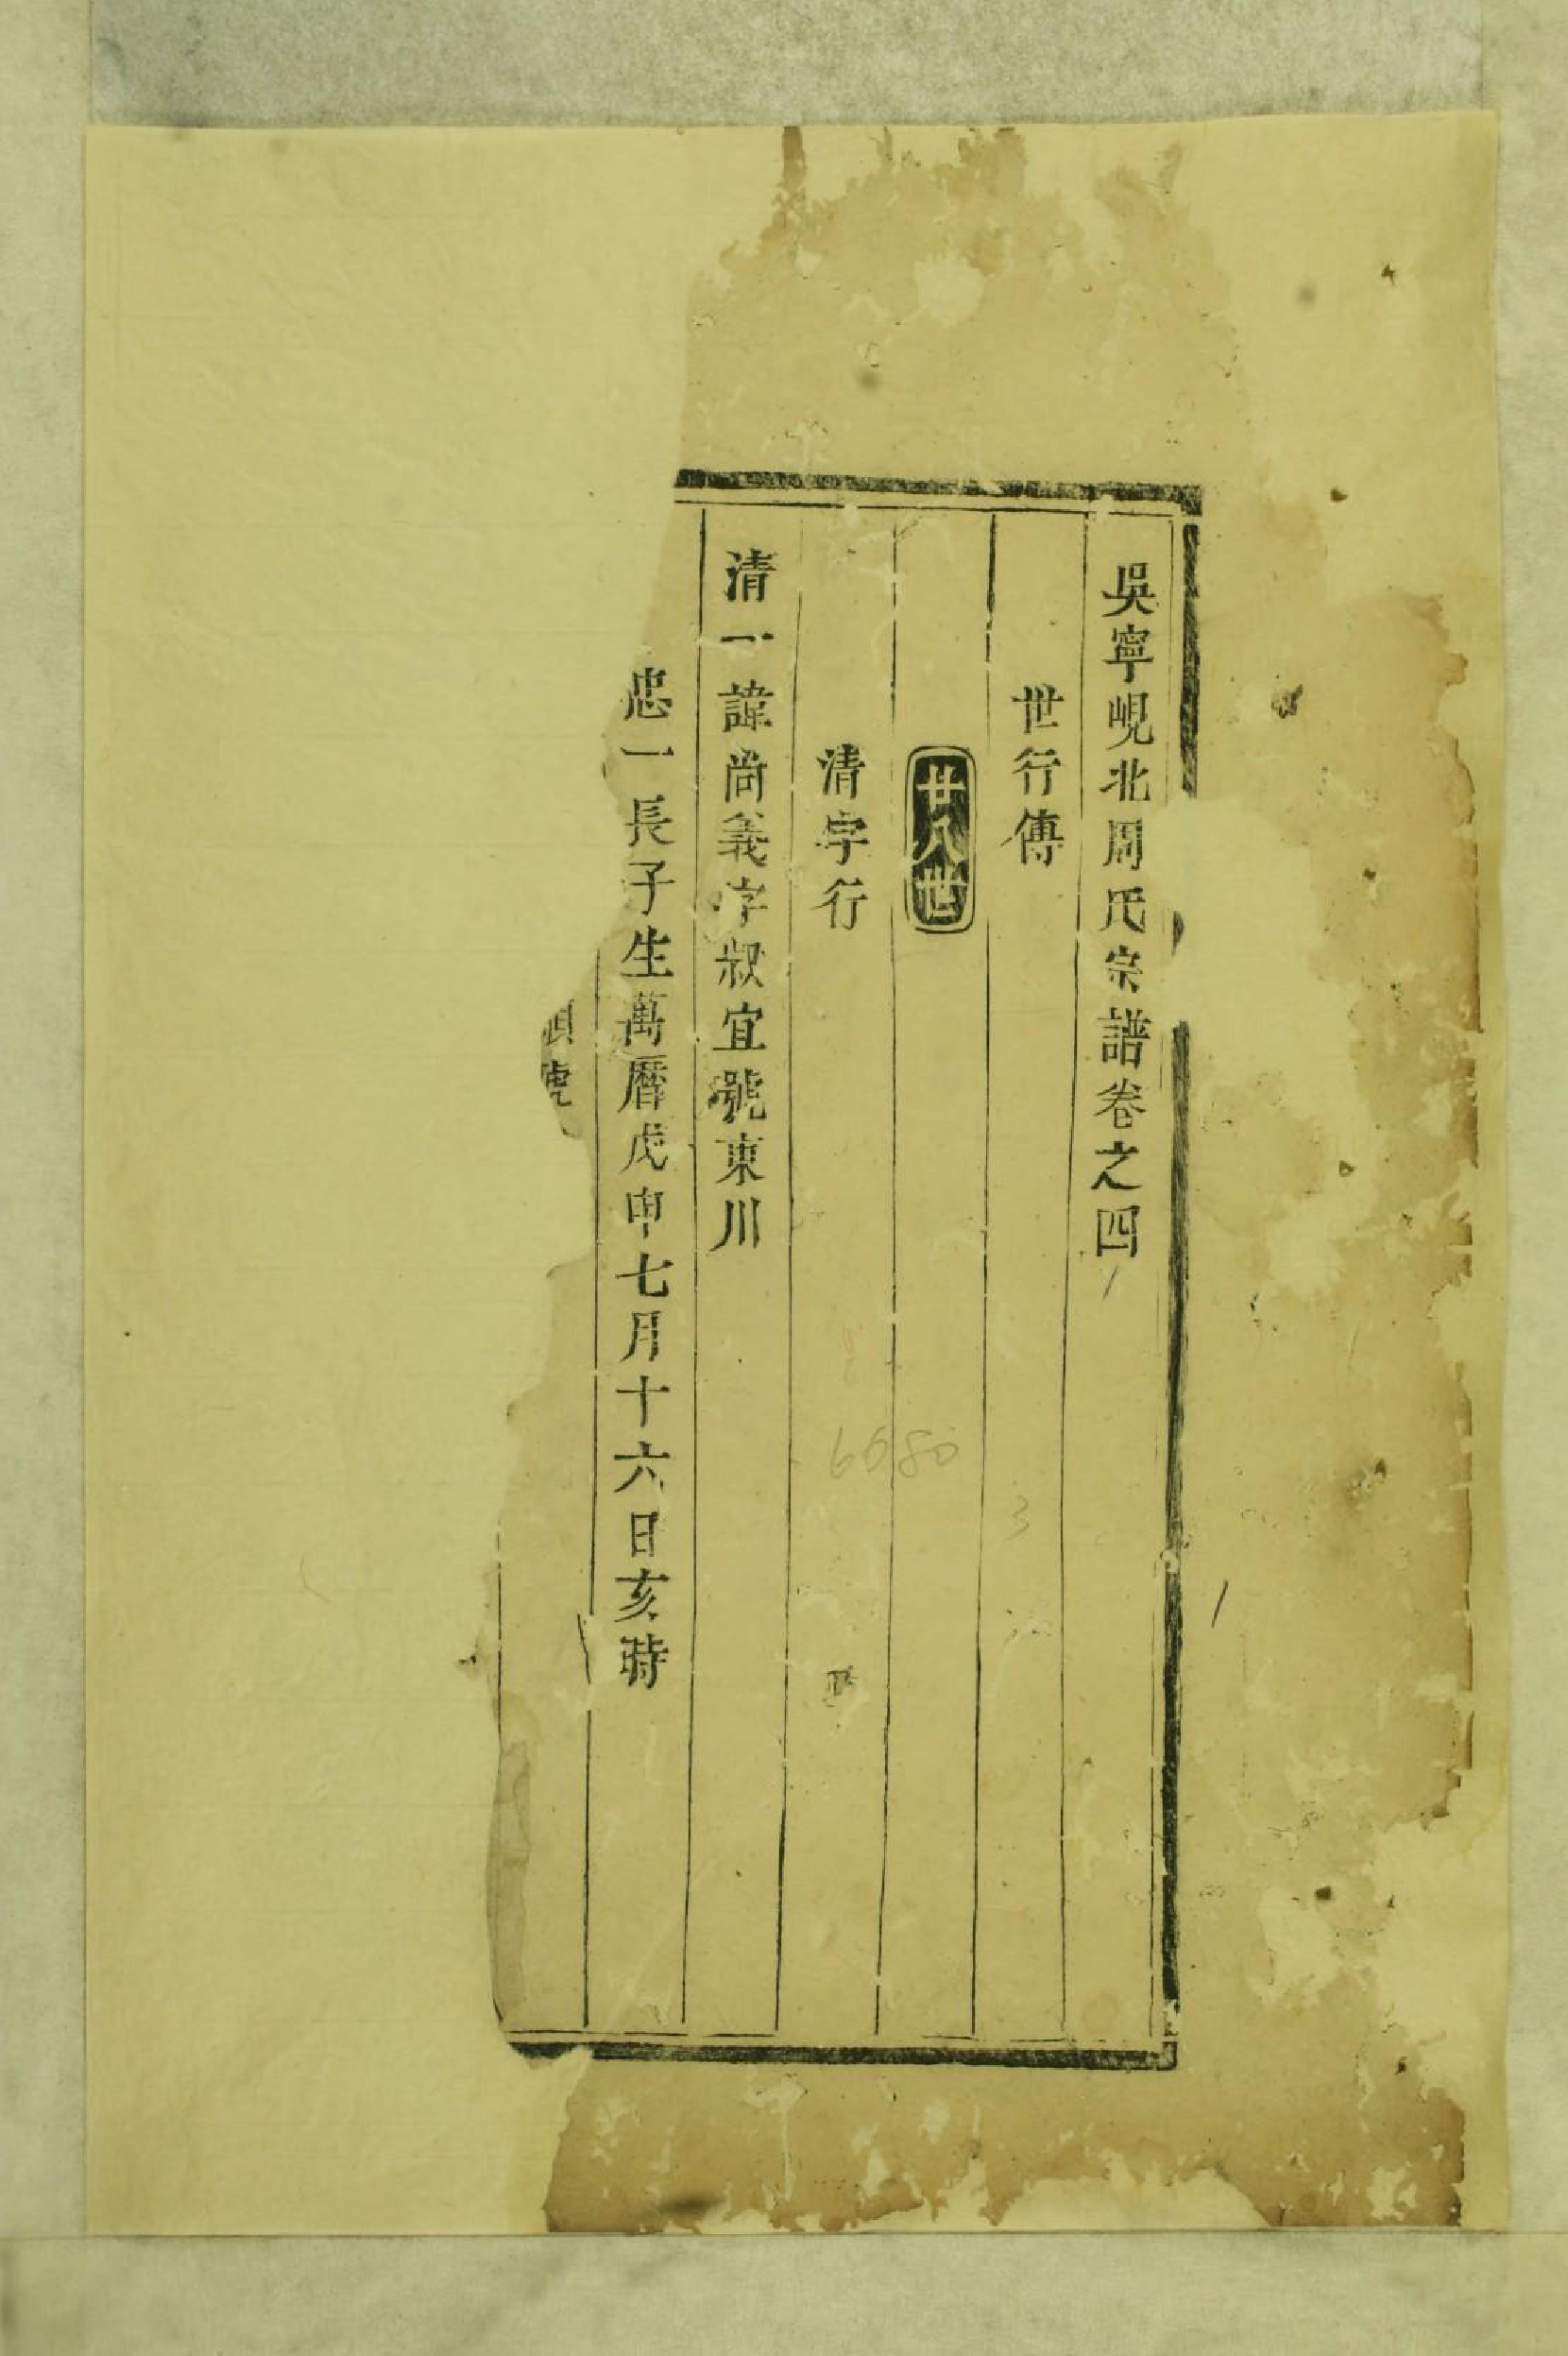 吳寧峴北周氏宗譜卷之四
世行傳
廿八世
清字行
清一諱尚義字叔宜號東川
忠一長子生萬曆戊申七月十六日亥時
號
6680
3